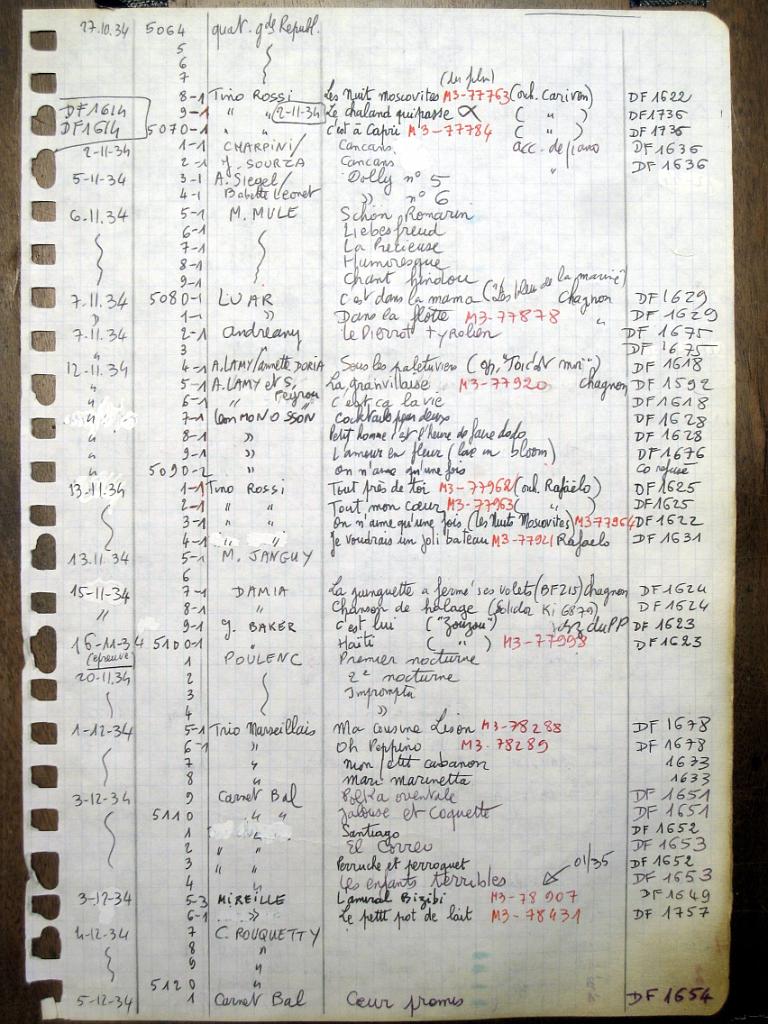 27.10.34 5064 quat. gde Republ.
5
6
7 (du film)
8-1 Tino Rossi Les Nuit moscovites M3-77763 (orch. Cariven) DF 1622
DF1614 9-1 " " 2-11-34 Le chaland qui passe ( " ) DF1736
DF1614 5070-1 " " C'est à Capri M3-77784 ( " ) DF 1736
2-11-34 1-1 CHARPINI/ Cancans acc. de piano DF 1636
2-1 J. SOURZA Cancans " DF 1636
5-11-34 3-1 A. Siegel/ Dolly n° 5
4-1 Babette Léonet " n° 6
6.11.34 5-1 M. MULE Schon Romarin
6-1 Liebesfreud
7-1 La Précieuse
8-1 Humoresque
9-1 Chant hindou
7.11.34 5080-1 LUAR C'est dans la mama ("Les bleus de la marine") Chagnon DF 1629
" 1-1 " Dans la flotte M3-77878 " DF 1629
7.11.34 2-1 Andreany Le Pierrot tyrolien DF 1675
" 3 DF 1675
12-11-34 4-1 A. LAMY/Annette DORIA Sous les palétuviers (op. "Toi c'est moi") DF 1618
" 5-1 A. LAMY et S. La granvillaise M3-77920 Chagnon DF 1592
" 6-1 " " C'est ça la vie DF 1618
7-1 Léon MONOSSON Cocktails pour deux DF 1628
" 8-1 " Petit homme c'est l'heure de faire dodo DF 1628
" 9-1 " L'amour en fleur (love in bloom) DF 1676
" 5090-2 " On n'aime qu'une fois Co refusé
13-11-34 1-1 Tino Rossi Tout près de toi M3-77962 (orch. Rafaëlo) DF 1625
2-1 " " Tout mon cœur M3-77963 ( " ) DF 1625
3-1 " " On n'aime qu'une fois (les Nuits Moscovites) M3 77964 DF 1622
4-1 " " Je voudrais un joli bateau M3-77921 Rafaelo DF 1631
13.11.34 5-1 M. JANGUY
6
15-11-34 7-1 DAMIA La guinguette a fermé ses volets (BF215) Chagnon DF 1624
" 8-1 " Chanson de halage (Solidor Ki 6879) DF 1624
9-1 J. BAKER C'est lui ("Zouzou") DF 1623
16-11-34 5100-1 " Haïti ( " ) M3-77998 DF 1623
(épreuve) 1 POULENC Premier nocturne
20-11.34 2 2e nocturne
3 Impromptu
4 "
1-12-34 5-1 Trio Marseillais Ma cousine Lison M3-78288 DF 1678
6-1 " Oh Peppino M3-78289 DF 1678
7 " Mon petit cabanon 1673
8 " Mari marinetta 1633
3-12-34 9 Carnet Bal Polka orientale DF 1651
5110 " " Jalouse et Coquette DF 1651
1 Santiago DF 1652
2 " " El Correo DF 1653
3 " " Perruche et perroquet 01/35 DF 1652
4 " Les enfants terribles DF 1653
3-12-34 5-3 MIREILLE L'amiral Bizibi M3-78907 DF 1649
6-1 " Le petit pot de lait M3-78431 DF 1757
4-12-34 7 C. ROUQUETTY
8 "
9 "
5120 "
5-12-34 1 Carnet Bal Cœur promis DF 1654